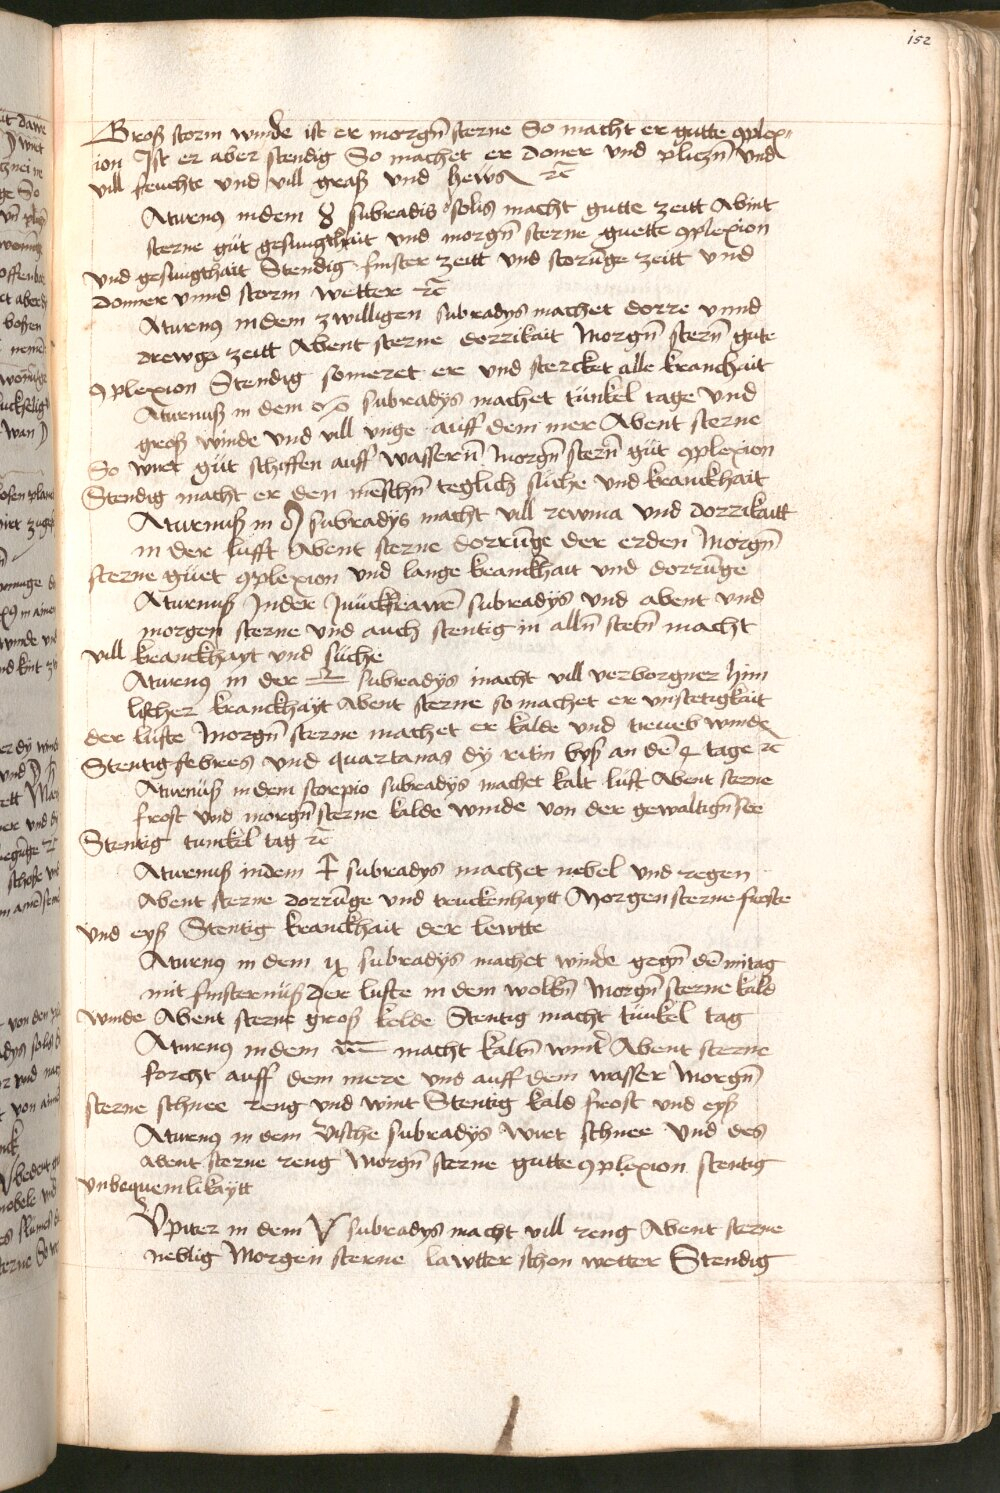 152
Groß storm winde ist er morgn̄ sterne So macht er gutte ꝯplex-
ion Ist er aber stendig So machet er doner vnd pliczn̄ vnd
vill feuchte vnd vill graß vnd hews ꝛc̄
Aturnꝰ indem ♉ subradis solis macht gutte zeitt Abint
sterne güt gesungthait vnd morgn̄ sterne guette ꝯplexion
vnd gesungthait Stendig finster zeitt vnd storūge zeitt vnd
donner vnnd storm wetter ꝛc̄
Aturnꝰ indem zwilligen subradys machet dorre vnnd
drewge zeitt Abent sterne dorrikait Morgn̄ stern̄ gute
ꝯplexion Stendig someret er vnd stercket alle kranchait
Aturnuß in dem ♋ subradÿs machet tünkel tage vnd
groß winde vnd vill vnge auff dem mer Abent sterne
So wirt güt schiffen auff wassern̄ Morgn̄ stern̄ güt ꝯplexion
Stendig macht er den mēschn̄ teglich süche vnd kranckhait
Aturnuß in ♌ subradÿs macht vill rewma vnd dorrikaitt
in der lufft Abent sterne dorrūge der erden Morgn̄
sterne güet ꝯplexion vnd lange kranckhait vnd dorrūge
Aturnuß Inder Junckfrawē subradÿs vnd abent vnd
morgen sterne vnd auch stentig in alln̄ stetn̄ macht
vill kranckhayt vnd süche
Aturnꝰ in der ♎ subradÿs macht vill verborgner him
lischer kranckhäyt Abent sterne so machet er vnstetigkait
der lüfte Morgn̄ sterne machet er kalde vnd trueb winde
Stentig febres vnd quartanas dÿ ritin byß an dē 4 tage ꝛc̄
Aturnüß indem scorpio subradÿs machet kalt luft Abent sterne
frost vnd morgn̄ sterne kalde winde von der gewaltign̄ see
Stentig tunckel tag ꝛc̄
Aturnuß indem ♐ subradys machet nebel vnd regen
Abent sterne dorrūge vnd truckenhaytt Morgen sterne froste
vnd eyß Stentig kranckhait der lewtte
Aturnꝰ in dem ♑ subradÿs machet winde gegn̄ dē mitag
mit finsternüß der lüfte in dem wolkn̄ Morgn̄ sterne kald
winde Abent sterne groß kelde Stentig macht tünkel tag
Aturnꝰ indem ♒ macht kaltn̄ wint̄ Abent sterne
forcht auff dem mere vnd auff dem wasser Morgn̄
sterne schnee reng vnd wint Stentig kald frost vnd eyß
Aturnꝰ in dem Vische subradÿs wirt schnee vnd des
abent sterne reng Morgn̄ sterne gutte ꝯplexion stentig
vnbequemlikaytt
Vpiter in dem ♈ subradys macht vill reng Abent sterne
neblig Morgen sterne lawtter schon wetter Stendig